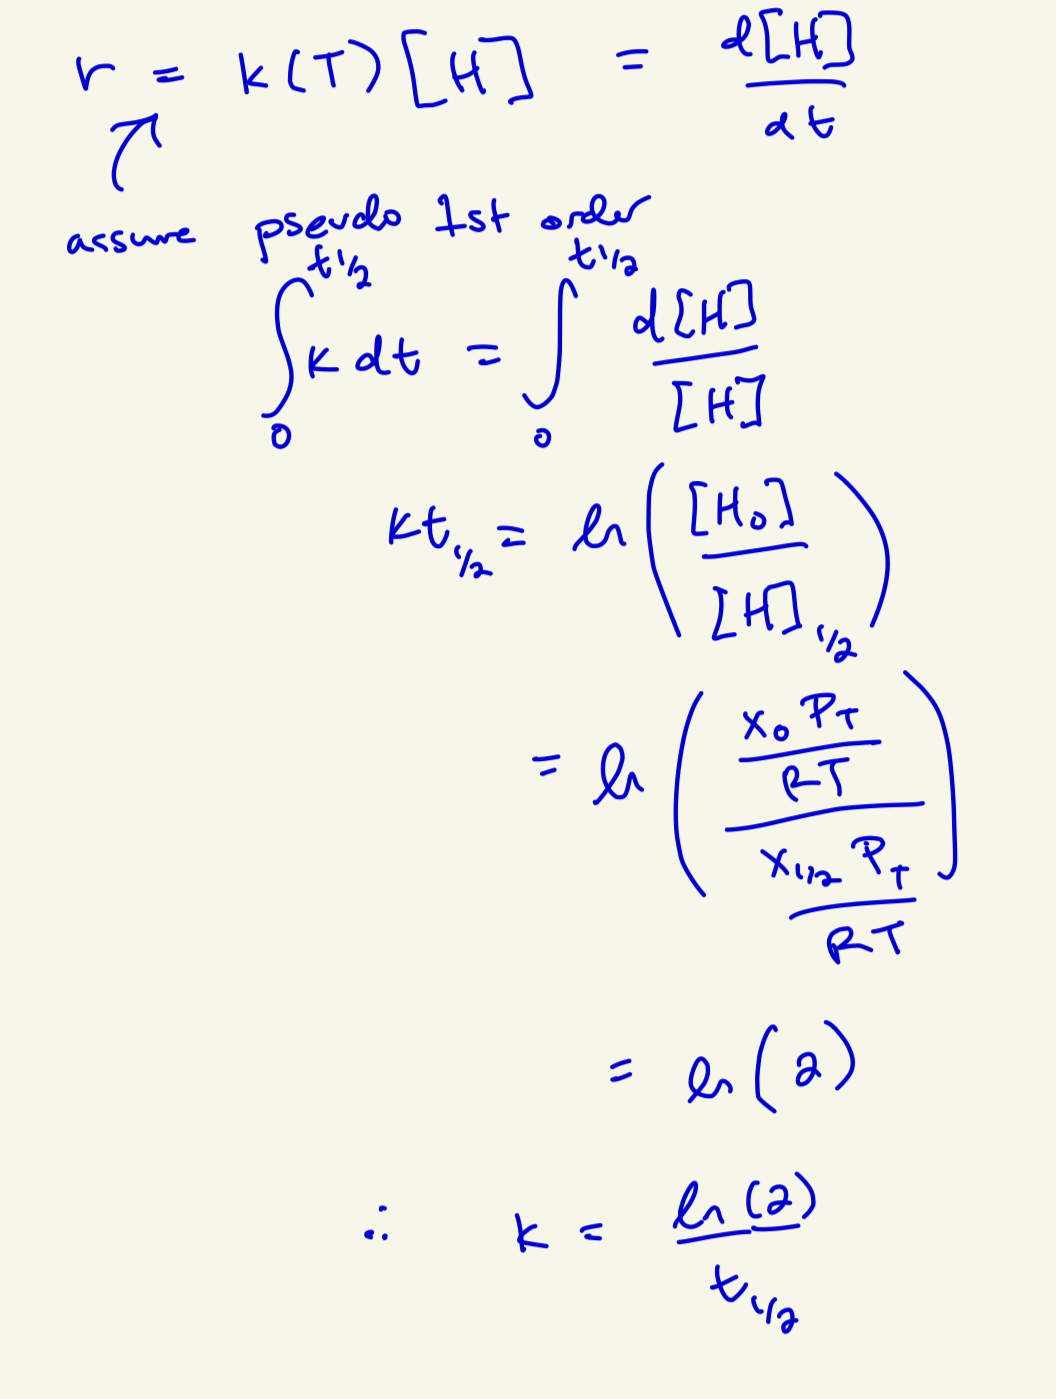 r = k(T)[H] = d[H]/dt
assume pseudo 1st order
∫₀^t1/2 k dt = ∫₀^t1/2 d[H]/[H]
kt_1/2 = ln([H₀]/[H]_1/2)
= ln((x₀P_T/RT)/(x_1/2 P_T/RT))
= ln(2)
∴ k = ln(2)/t_1/2